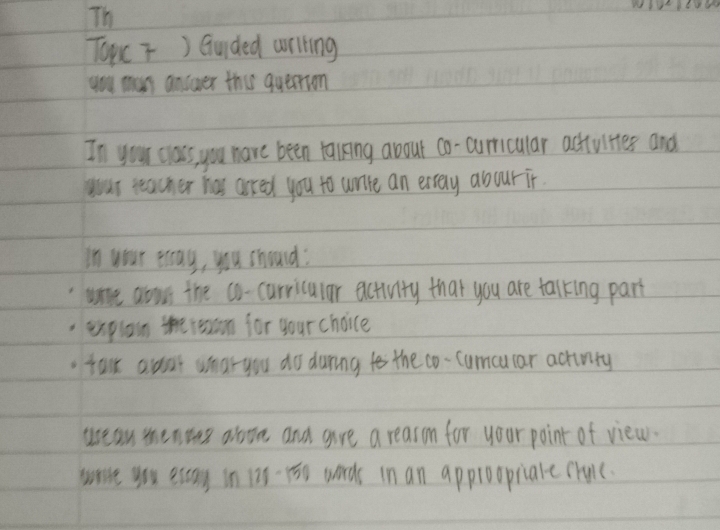 Th
Topic 7 ) Guided writing
you must answer this question
In your class, you have been talking about co-curricular activities and
your teacher has asked you to write an essay about it.
In your essay, you should:
• write about the co-curricular activity that you are talking part
• explain the reason for your choice
• talk about what you do during the co-curricular activity
use all the notes above and give a reason for your point of view.
write you essay in 125-150 words in an approopriate style.